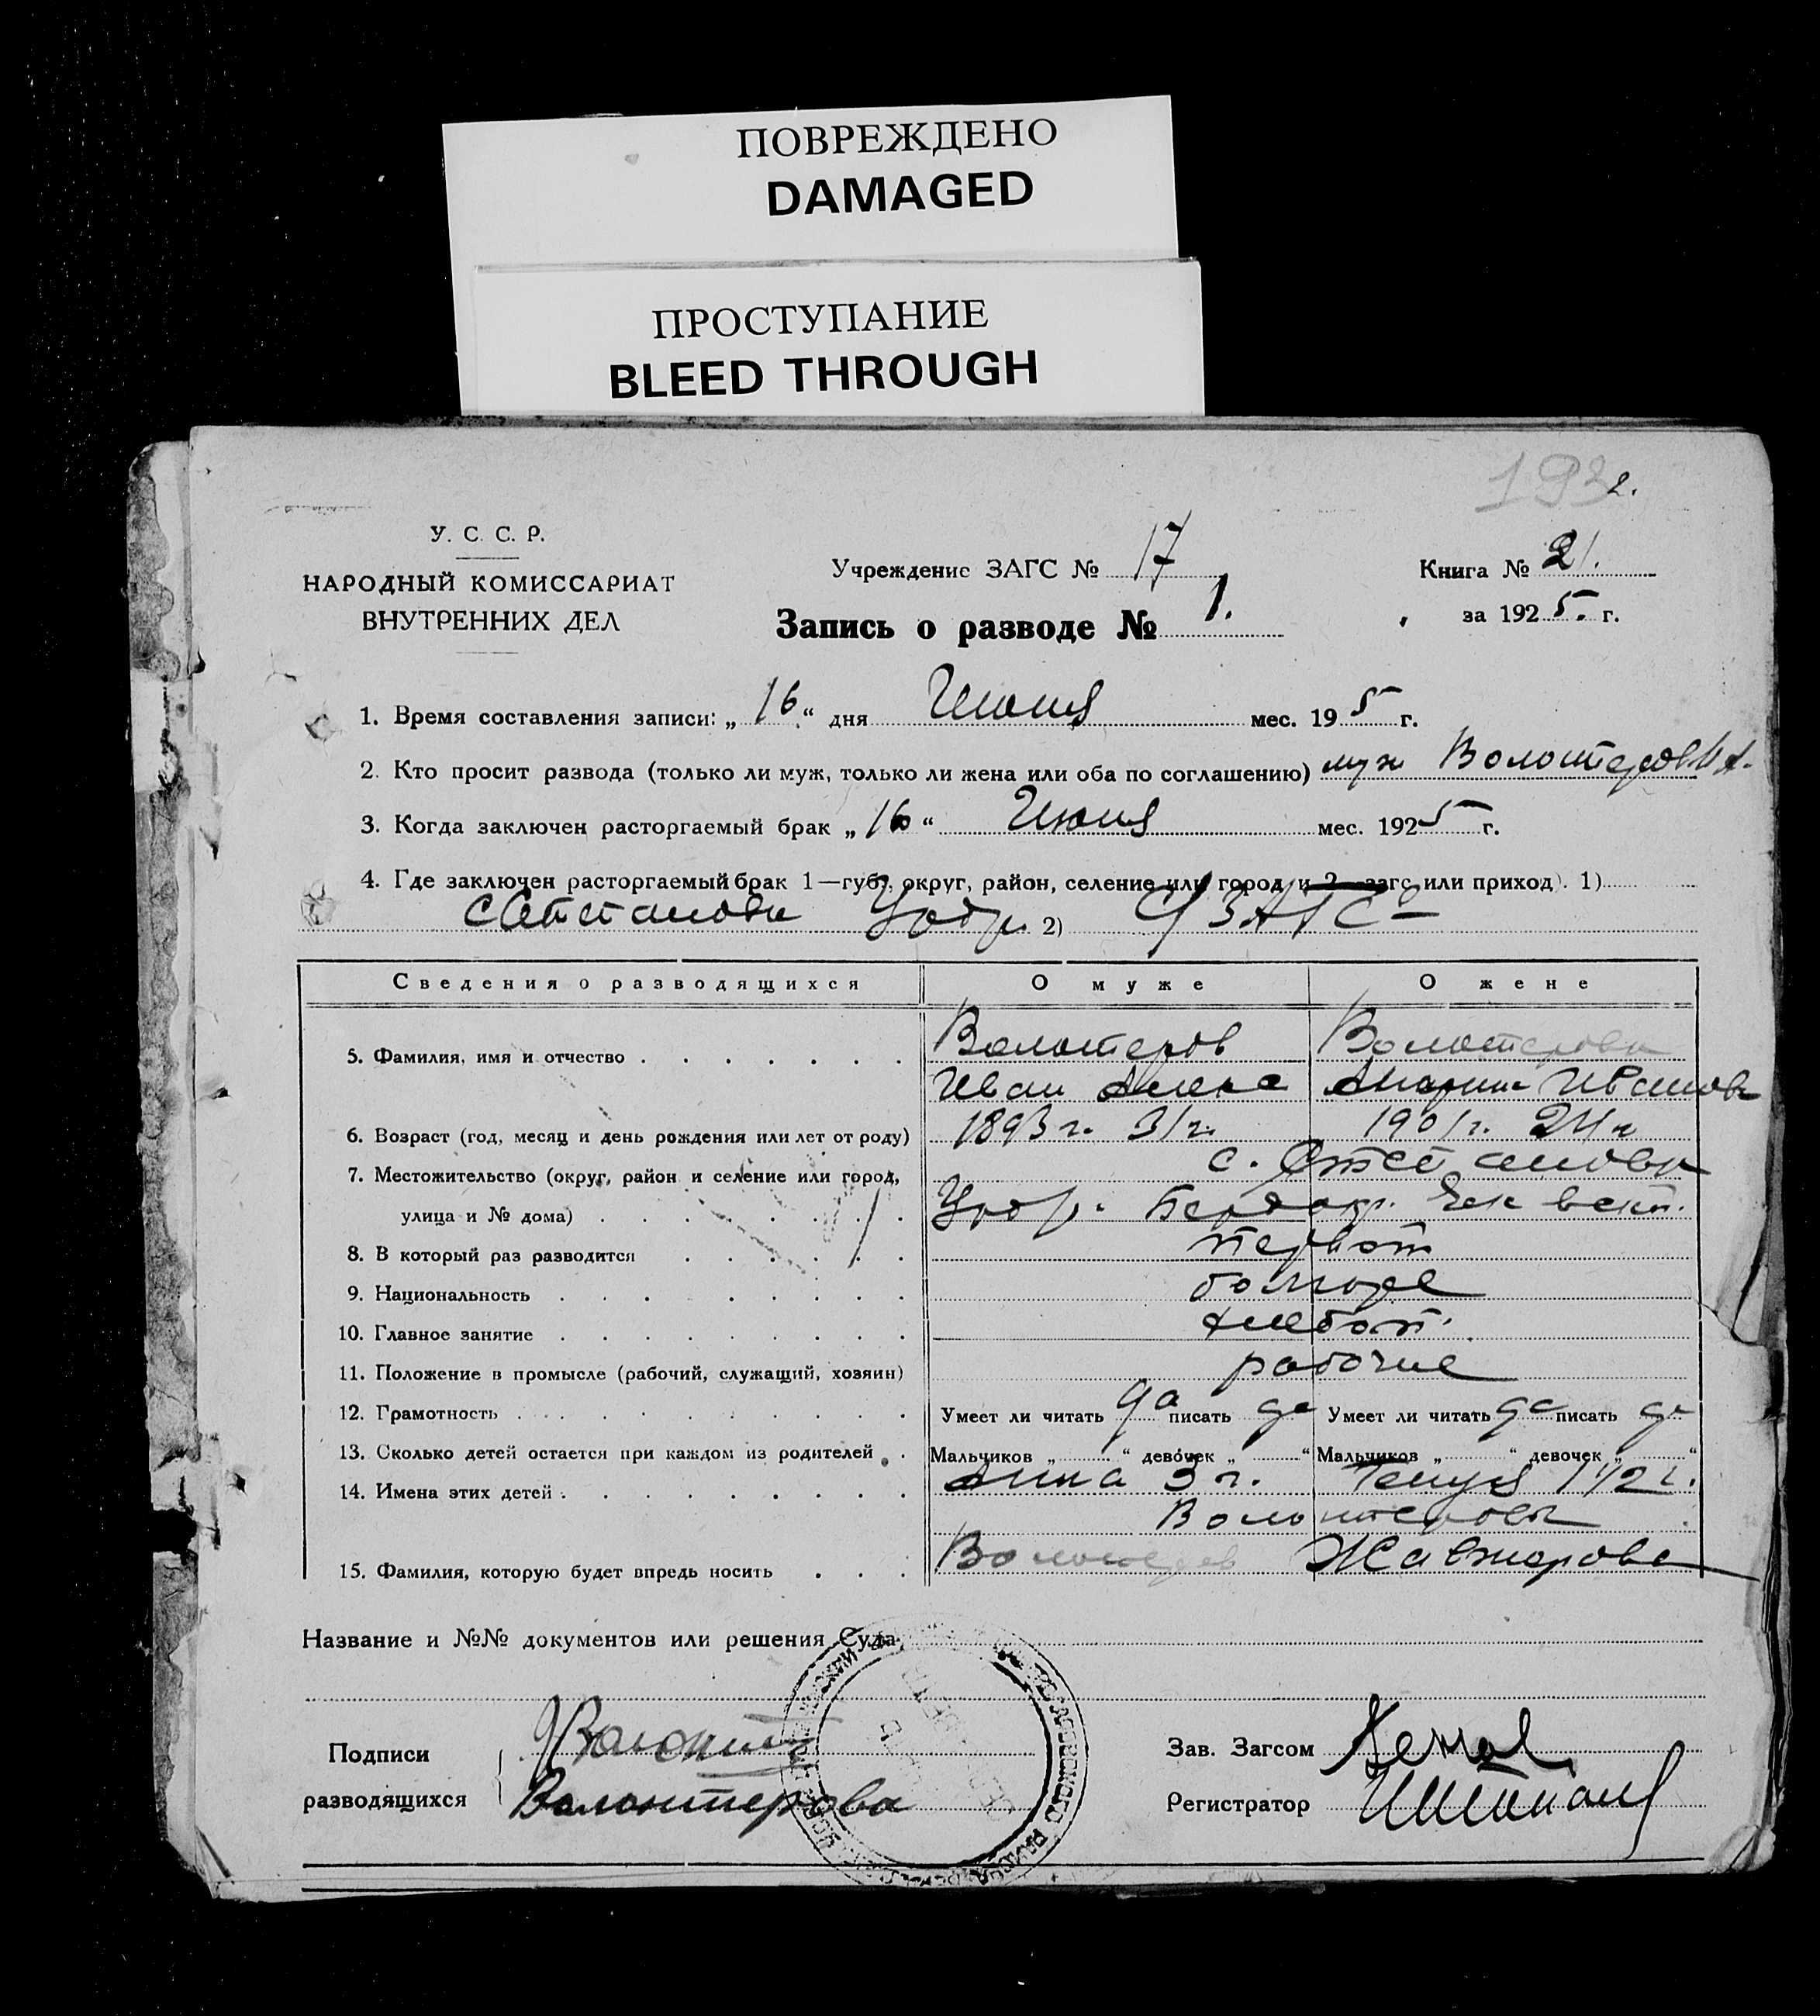 ПОВРЕЖДЕНО
DAMAGED
ПРОСТУПАНИЕ
BLEED THROUGH
2.
У. С. С. Р.
НАРОДНЫЙ КОМИССАРИАТ
ВНУТРЕННИХ ДЕЛ
Учреждение ЗАГС № 17
Книга № 21.
Запись о разводе № 1.
за 1925. г.
1. Время составления записи: „16“ дня Июня мес. 195 г.
2. Кто просит развода (только ли муж, только ли жена или оба по соглашению) муж
3. Когда заключен расторгаемый брак „16“ Июня мес. 1925 г.
4. Где заключен расторгаемый брак 1—губ., округ, район, селение или город и 2—загс или приход). 1)
2) ЗАГС
Сведения о разводящихся О муже О жене
5. Фамилия, имя и отчество Волонтеров Волонтерова
Иван Алекс Мария Иванов
6. Возраст (год, месяц и день рождения или лет от роду) 1893 г. 31 г. 1901 г. 24 г
7. Местожительство (округ, район и селение или город,
улица и № дома)
8. В который раз разводится первый
9. Национальность болгаре
10. Главное занятие хлебоп.
11. Положение в промысле (рабочий, служащий, хозяин) рабочие
12. Грамотность Умеет ли читать да писать да Умеет ли читать да писать да
13. Сколько детей остается при каждом из родителей Мальчиков „ “ девочек „ “ Мальчиков „ “ девочек „ “
14. Имена этих детей Анна 3 г. 1 1/2 г.
Волонтеровы
15. Фамилия, которую будет впредь носить Волонтеров Жавжарова
Название и №№ документов или решения Суда
Подписи
разводящихся
Волонтерова
Зав. Загсом
Регистратор